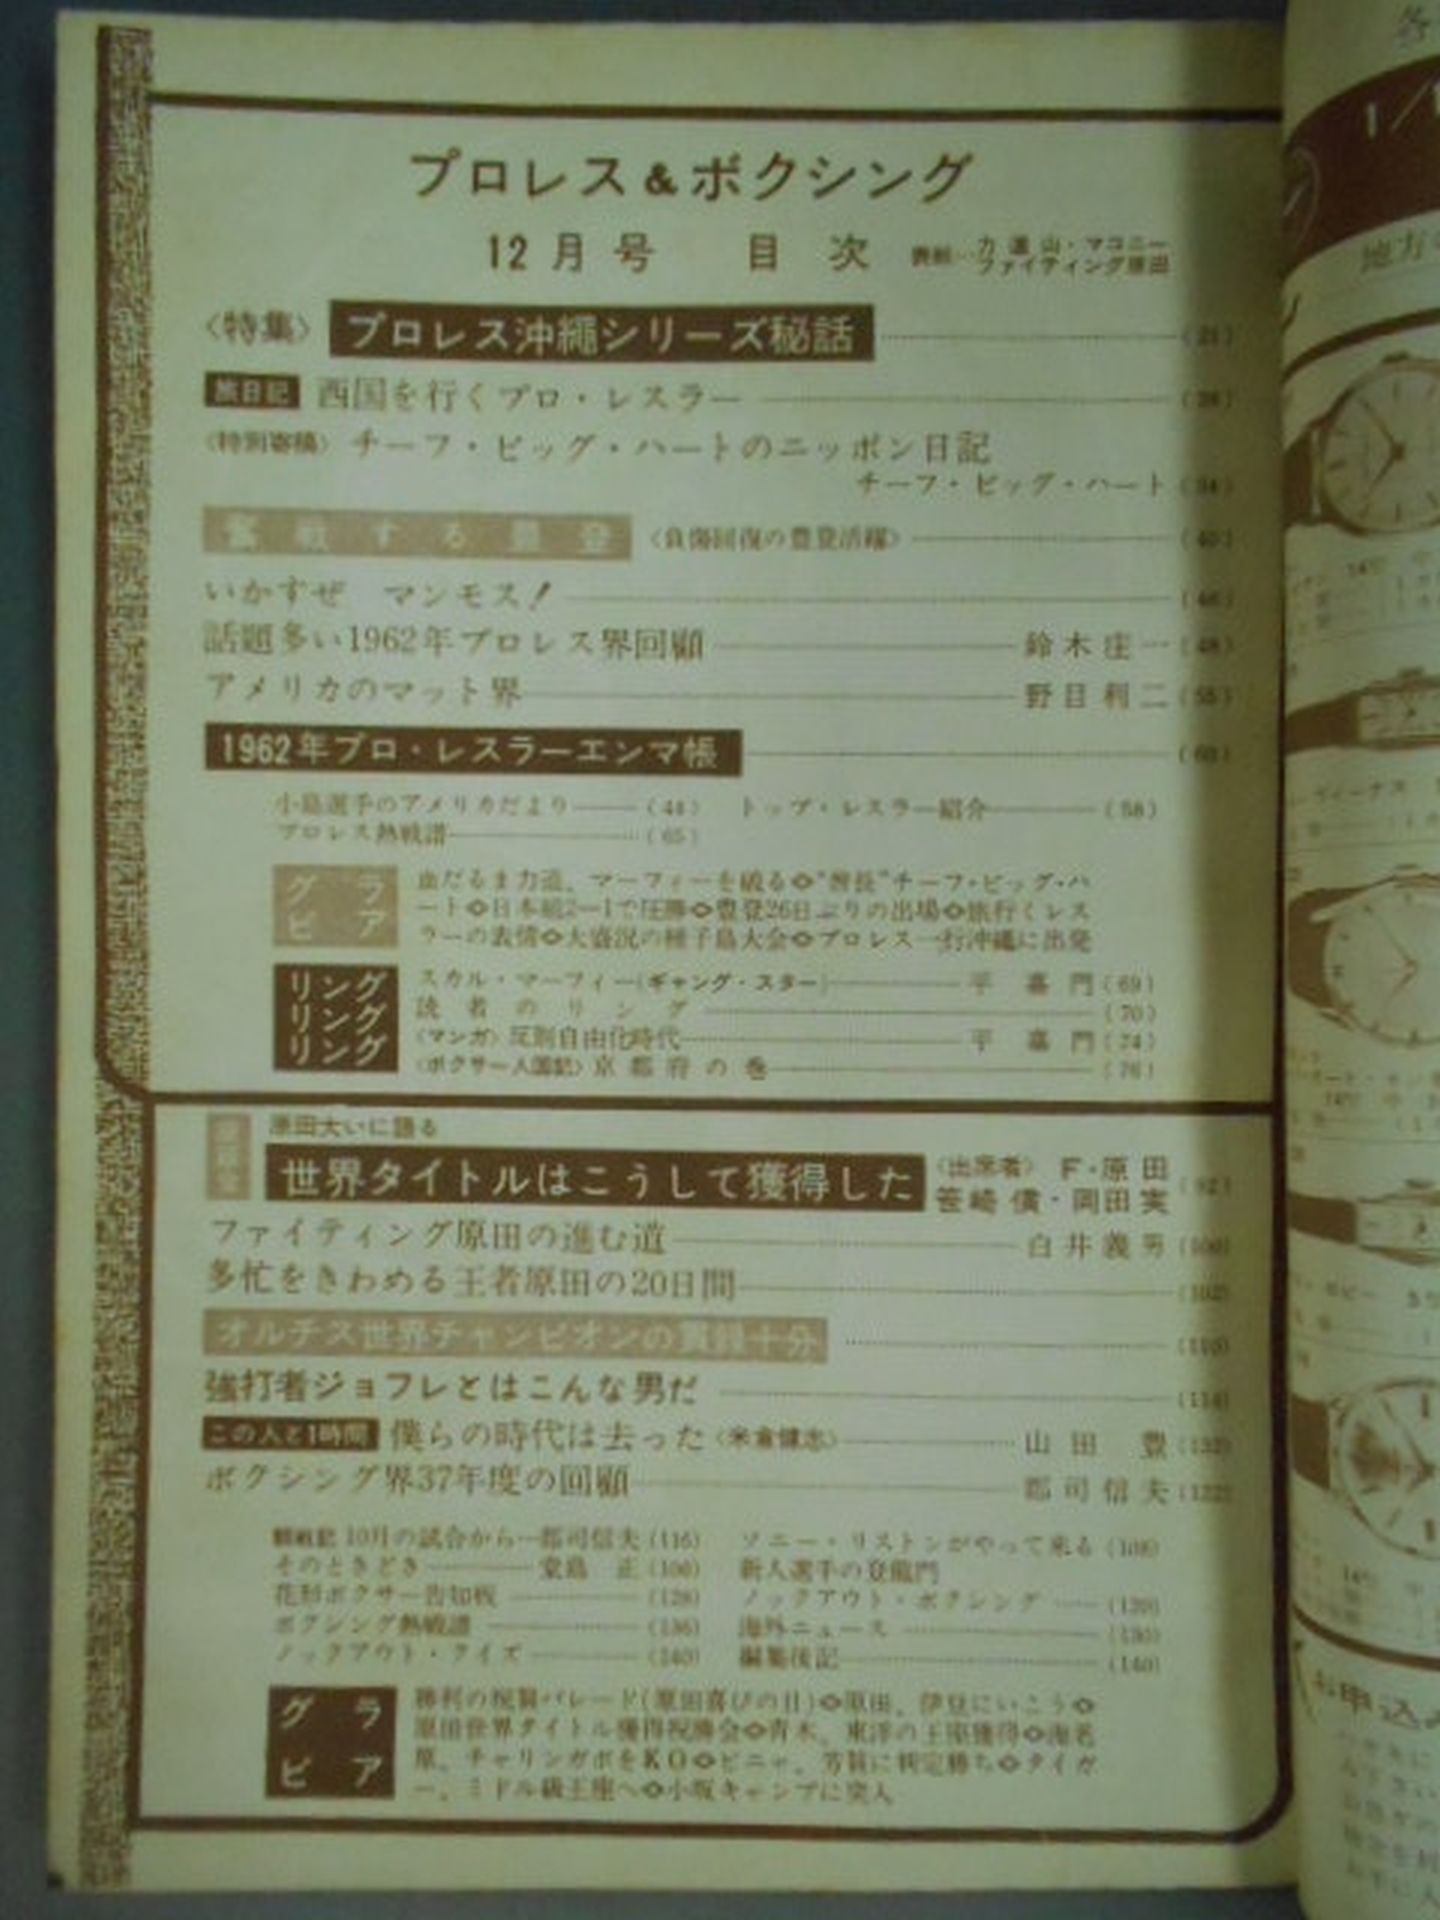 プロレス&ボクシング
12月号 目次 表紙…力道山・マコニー
ファイティング原田
〈特集〉 プロレス沖縄シリーズ秘話 (21)
旅日記 西国を行くプロ・レスラー
〈特別寄稿〉 チーフ・ビッグ・ハートのニッポン日記
チーフ・ビッグ・ハート (34)
奮戦する豊登 〈負傷回復の豊登活躍〉 (40)
いかすぜ マンモス! (46)
話題多い1962年プロレス界回顧 鈴木庄一 (48)
アメリカのマット界 野目利二 (55)
1962年プロ・レスラーエンマ帳 (60)
小島選手のアメリカだより (44) トップ・レスラー紹介 (58)
プロレス熱戦譜 (65)
グラ
ビア
血だるま力道、マーフィーを破る◇"酋長"チーフ・ビッグ・ハ
ート◇日本組2―1で圧勝◇豊登26日ぶりの出場◇旅行くレス
ラーの表情◇大盛況の種子島大会◇プロレス一行沖縄に出発
リング
リング
リング
スカル・マーフィー(ギャング・スター) 平嘉門 (69)
読者のリング (70)
〈マンガ〉 反則自由化時代 平嘉門 (74)
〈ボクサー人国記〉 京都府の巻 (76)
座談会 原田大いに語る
世界タイトルはこうして獲得した 〈出席者〉 F・原田
笹崎僙・岡田実 (92)
ファイティング原田の進む道 白井義男 (100)
多忙をきわめる王者原田の20日間 (102)
オルチス世界チャンピオンの貫録十分 (110)
強打者ジョフレとはこんな男だ (114)
この人と1時間 僕らの時代は去った 〈米倉健志〉 山田 豊 (132)
ボクシング界37年度の回顧 郡司信夫 (122)
観戦記 10月の試合から…郡司信夫 (116) ソニー・リストンがやって来る (108)
そのときどき 堂島 正 (106) 新人選手の登龍門
花形ボクサー告知板 (128) ノックアウト・ボクシング (129)
ボクシング熱戦譜 (136) 海外ニュース (130)
ノックアウト・クイズ (140) 編集後記 (140)
グラ
ビア
勝利の祝賀パレード(原田喜びの日)◇原田、伊豆にいこう◇
原田世界タイトル獲得祝勝会◇青木、東洋の王座獲得◇海老
原、チャリンガボをKO◇ピニャ、芳賀に判定勝ち◇タイガ
ー、ミドル級王座へ◇小坂キャンプに突入
各
地方
14℃ 中
お申込み